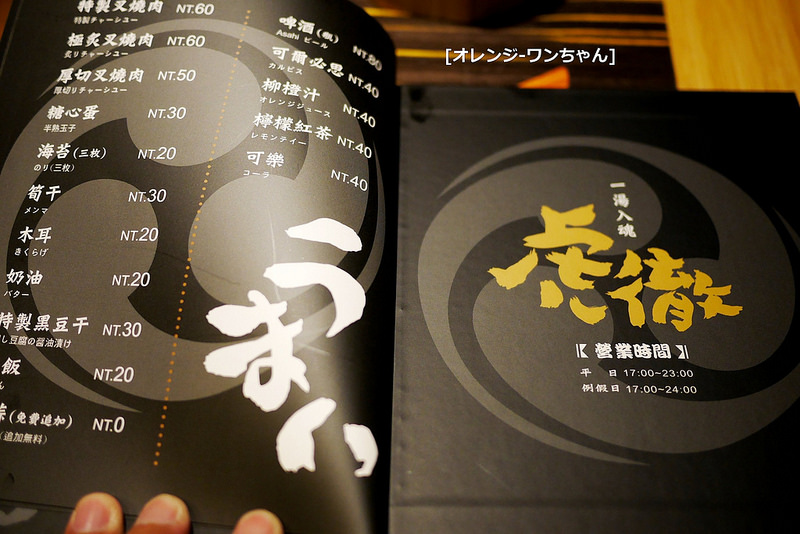 特製叉燒肉 NT.60
特製チャーシュー
極炙叉燒肉 NT.60
炙りチャーシュー
厚切叉燒肉 NT.50
厚切りチャーシュー
糖心蛋 NT.30
半熟玉子
海苔(三枚) NT.20
のり(三枚)
筍干 NT.30
メンマ
木耳 NT.20
きくらげ
奶油 NT.20
バター
特製黑豆干 NT.30
し豆腐の醤油漬け
飯 NT.20
ん
(免費追加) NT.0
(追加無料)
啤酒(瓶) NT.80
Asahi ビール
可爾必思 NT.40
カルピス
柳橙汁 NT.40
オレンジジュース
檸檬紅茶 NT.40
レモンティー
可樂 NT.40
コーラ
うまい
[オレンジ-ワンちゃん]
一湯入魂
虎徹
【營業時間】
平 日 17:00~23:00
例假日 17:00~24:00